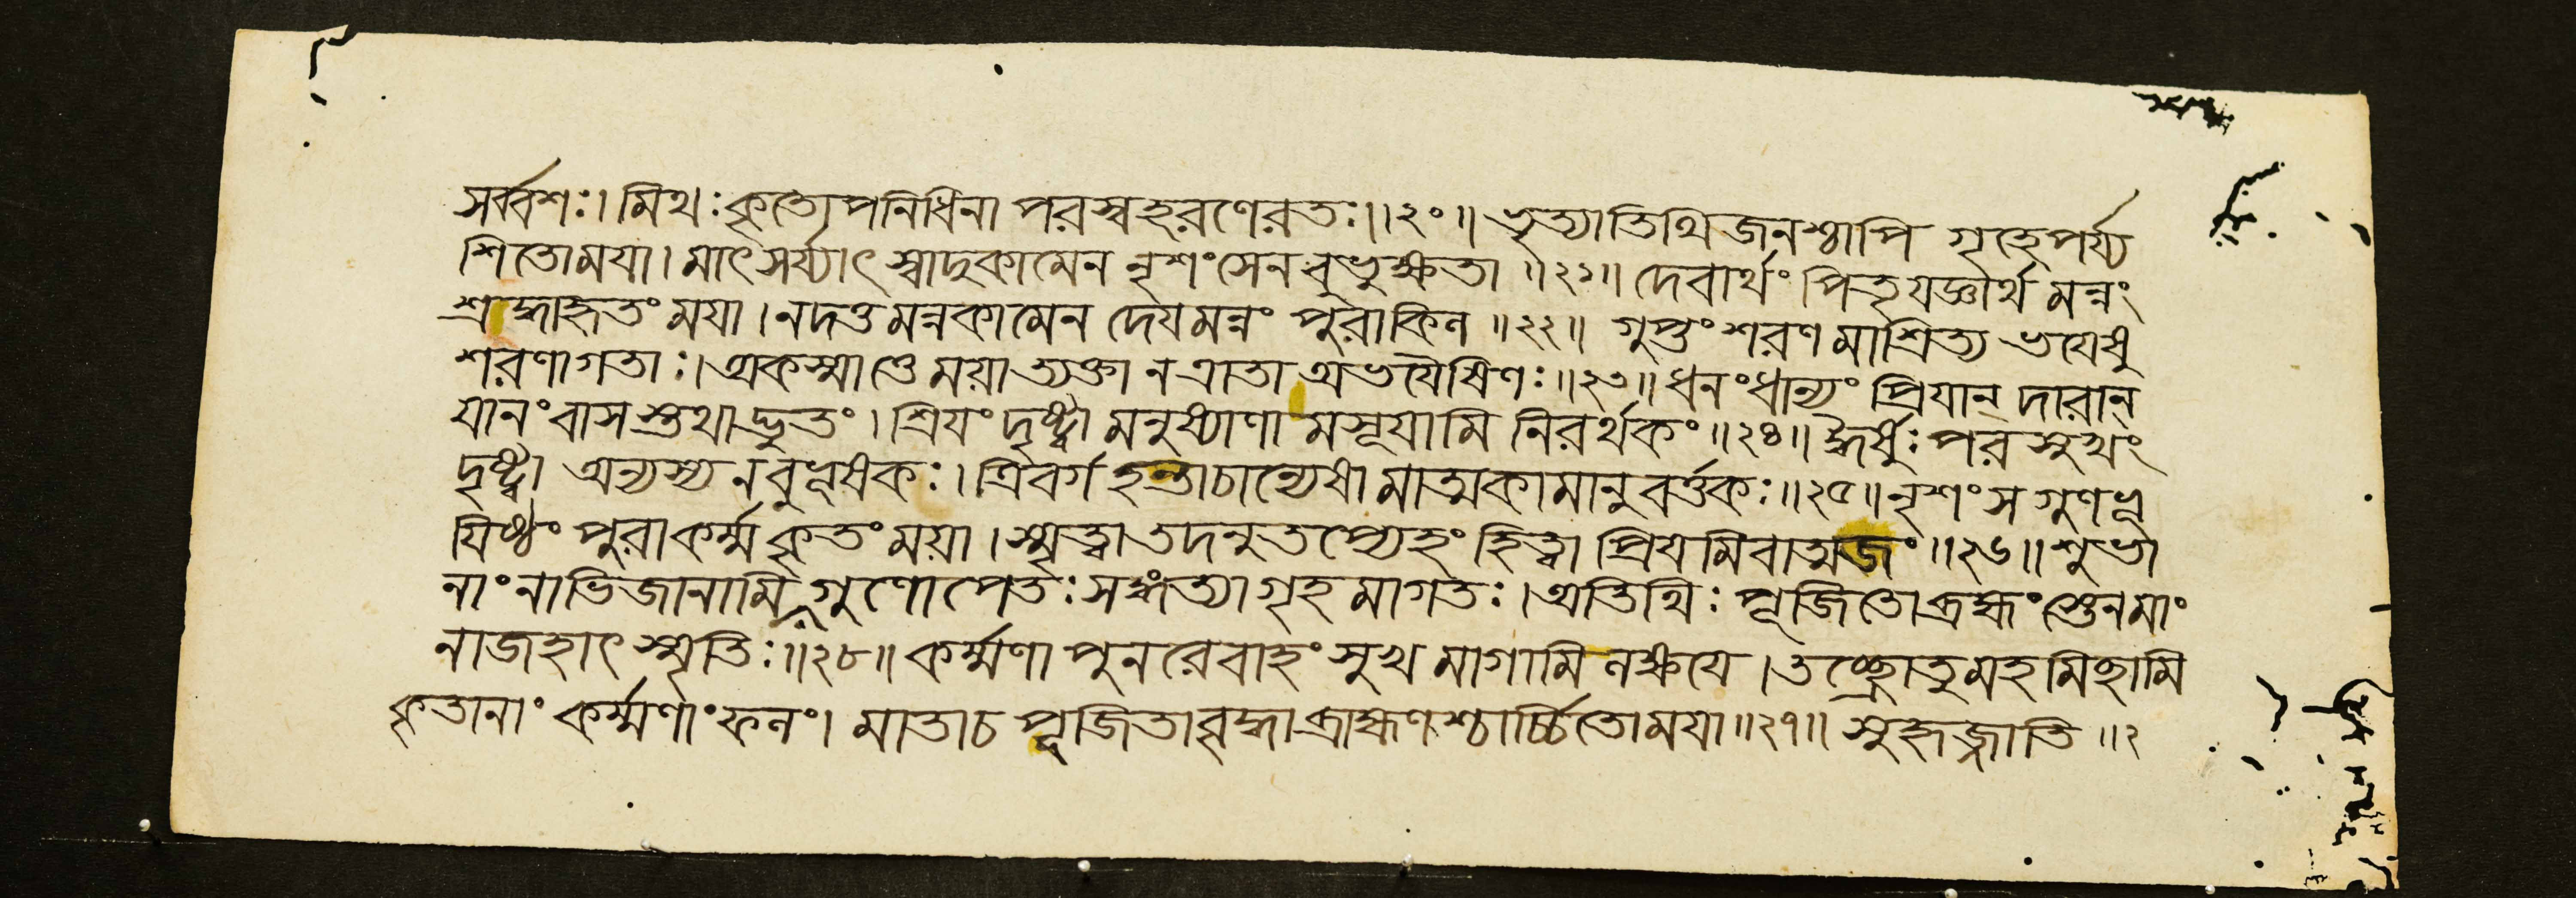 সর্ব্বশঃ। মিথঃকৃত্যোপনিধিনা পরস্বহরণেরতঃ॥২০॥ ভৃত্যাতিথিজনশ্চাপি গৃহেপর্য্য
শিতোময়া। মাৎসর্য্যাৎ স্বাদুকামেন নৃশংসেন বুভুক্ষতা ॥২১॥ দেবার্থং পিতৃযজ্ঞার্থ মন্নং
শ্রদ্ধাহৃতং ময়া। নদত্ত মন্নকামেন দেয়মন্নং পুরাকিল ॥২২॥ গুপ্তং শরণ মাশ্রিত্য ভয়েষু
শরণাগতাঃ। অকস্মাত্তে ময়াত্যক্তা নত্রাতা অভয়ৈষিণঃ॥২৩॥ ধনংধান্যং প্রিয়ান্ দারান্
যানংবাসস্তথাদ্ভুতং। শ্রিয়ং দৃষ্ট্বা মনুষ্যাণা মসূয়ামি নিরর্থকং॥২৪॥ ঈর্ষুঃ পরসুখং
দৃষ্ট্বা অন্যস্য নবুভূষকঃ। ত্রিবর্গহন্তাচান্যেষা মাত্মকামানুবর্ত্তকঃ॥২৫॥ নৃশংসগুণভূ
য়িষ্ঠং পুরাকর্ম্ম কৃতংময়া। স্মৃত্বাতদনুতপ্যেহং হিত্বা প্রিয়মিবাত্মজং॥২৬॥ শুভা
নাংনাভিজানামি গুণোপেতঃ সঙ্গত্যাগৃহমাগতঃ। অতিথিঃ পূজিতোব্রহ্মংস্তেনমাং
নাজহাৎ স্মৃতিঃ॥২৮॥ কর্ম্মণা পুনরেবাহং সুখমাগামি লক্ষয়ে। তচ্ছ্রোতুমহমিছামি
কৃতানাং কর্ম্মণাংফলং। মাতাচ পূজিতাবৃদ্ধাব্রাহ্মণশ্চার্চ্চিতোময়া॥২৭॥ সুকৃজ্জাতি ॥২